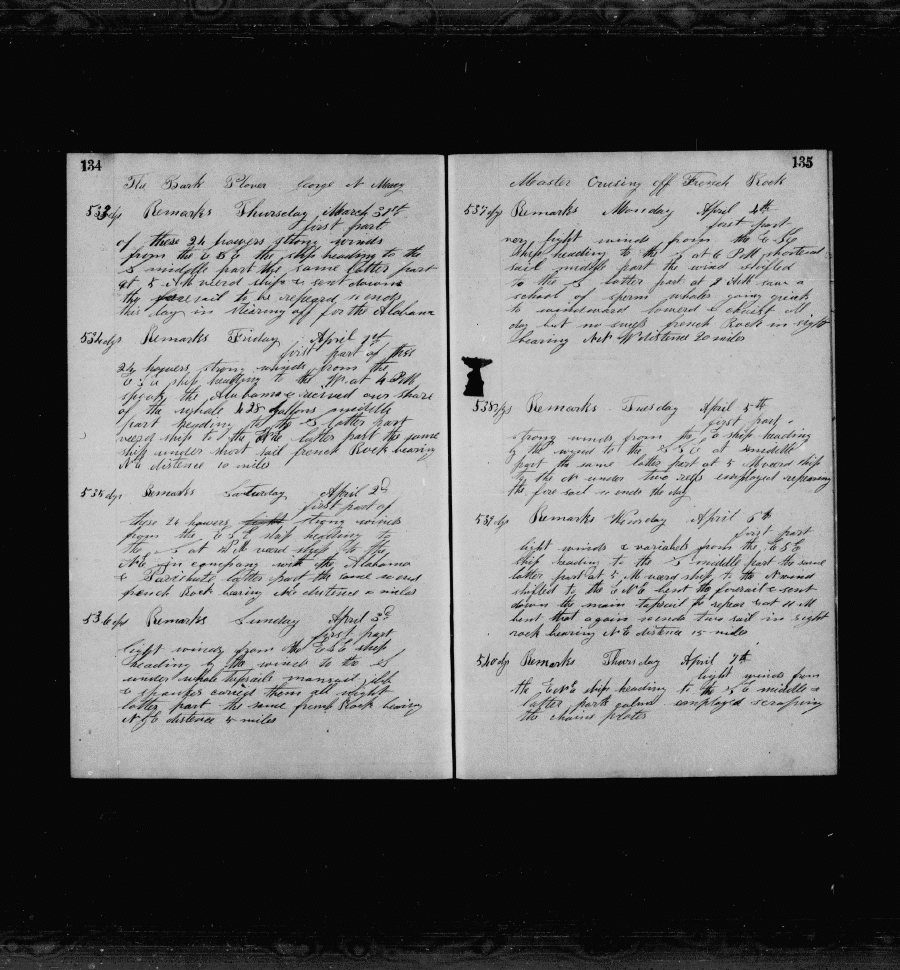 134
The Bark Plover George N Macey
533 dys Remarks Thursday March 31st
first part
of these 24 howers strong winds
from the E S E the ship heading to the
S middle part the same latter part
at 5 A M veerd ship & sent down
the foresail to be repaird so ends
this day in stearing off for the Alabama
534 dys Remarks Friday April 1st
first part of thes
24 howers strong winds from the
E S E ship heading to the at 4 P M
speak the Alabama & received our share
of the whale 428 gallons middle
part heading to the S latter part
veerd ship to the N E latter part the same
ship under short sail french Rock bearing
N E distence 10 miles
535 dys Remarks Saturday April 2d
first part of
these 24 howers light strong winds
from the E S E ship heading to
the S at 4 P M veerd ship to the
N E in company with the Alabama
& latter part the same wind
french Rock bearing N E distence miles
536 dys Remarks Sunday April 3d
first part
light winds from the E S E ship
heading by the wind to the S
under whole topsails jib
& spanker carried them all night
latter part the same french Rock bearing
N E distence 4 miles
135
Master Cruising off French Rock
537 dys Remarks Monday April 4th
first part
very light winds from the E S E
ship heading to the S at 6 P M shortend
sail middle part the wind shifted
to the S latter part at 8 A M saw a
school of sperm whales going quick
to windward lowerd & chaist all
day but no sucess french Rock in sight
bearing W distence 20 miles
538 dys Remarks Tuesday April 5th
first part
strong winds from the E ship heading
by the wind to the S S E at middle
part the same latter part at 5 M veerd ship
to the N under two reefs employed repairing
the fore sail so ends the day
539 dys Remarks Wensday April 6th
first part
light winds & variabels from the E S E
ship heading to the S middle part the same
latter part at 5 M veerd ship to the N wind
shifted to the E N E bent the foresail & sent
down the main topsail to repar & at 11 M
bent that again so ends two sail in sight
rock bearing N E distence 15 miles
540 dys Remarks Thursday April 7th
light winds from
the E N E ship heading to the S E middle &
latter parts calm employed scrapping
the chains plates